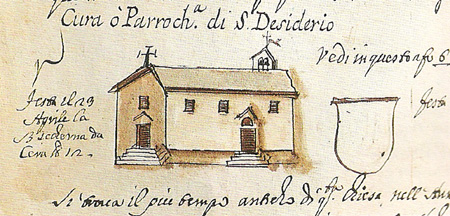 Cura ò Parroch.ª di S. Desiderio
Vedi in questo a fo. 6
Festa il 23
Aprile la
da
Cera lb 12.
festa
Si trova il più tempo anticho di q.sta Chiesa nell'